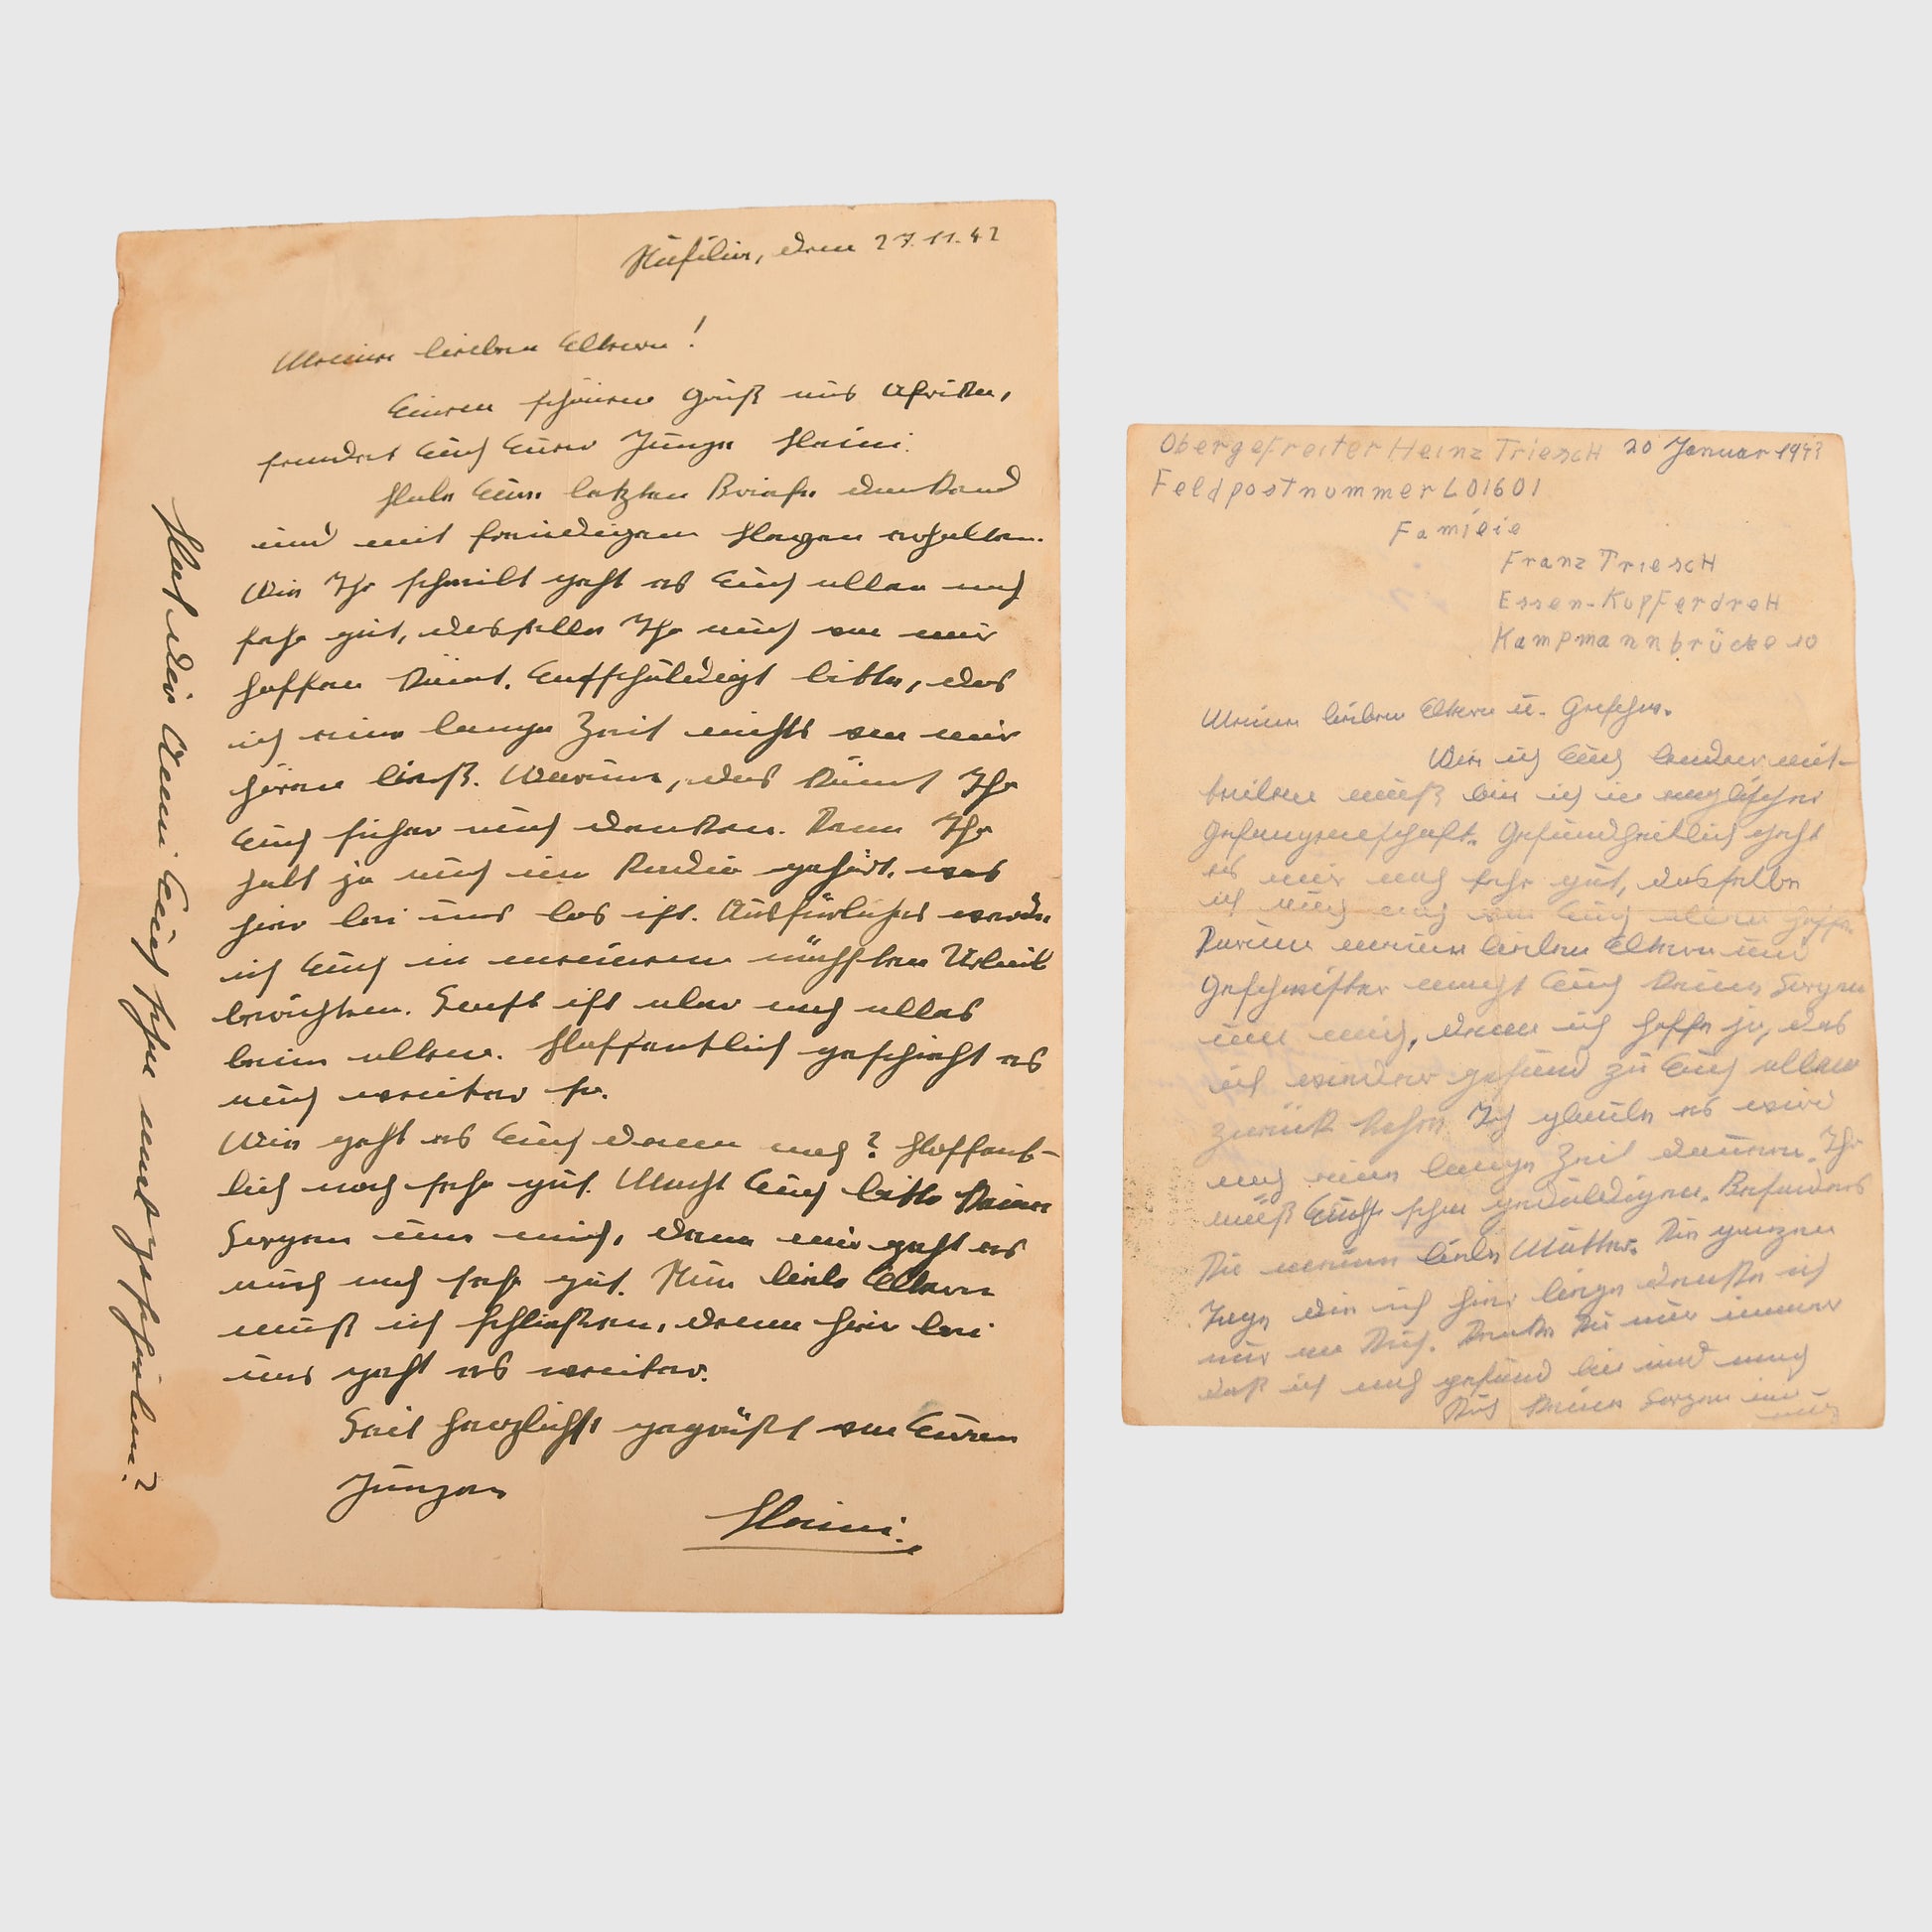 den 27.11.42
Meine lieben Eltern!
Einen schönen Gruß aus Afrika,
sendet Euch Euer Junge Heini.
Habe Eure letzten Briefe dankend
und mit freudigem Herzen erhalten.
Wie Ihr schreibt geht es Euch allen noch
sehr gut, dasselbe Ihr auch von mir
hoffen könnt. Entschuldigt bitte, das
ich eine lange Zeit nichts von mir
hören ließ. Warum, das könnt Ihr
Euch sicher auch denken. Denn Ihr
habt ja auch im Radio gehört, was
hier bei uns los ist. Ausfürliches werde
ich Euch in meinem nächsten Urlaub
berichten. Sonst ist aber noch alles
beim alten. Hoffentlich geschieht es
auch weiter so.
Wie geht es Euch denn noch? Hoffent-
lich noch sehr gut. Macht Euch bitte keine
Sorgen um mich, denn mir geht es
auch noch sehr gut. Nun liebe Eltern
muß ich schließen, denn hier bei
uns geht es weiter.
Seit herzlichst gegrüßt von Euren
Jungen
Heini.
Hat der Anni Euch schon mal geschrieben?
Obergefreiter Heinz Triesch 20 Januar 1943
Feldpostnummer L01601
Familie
Franz Triesch
Essen-Kupferdreh
Kampmannbrücke 10
Meine lieben Eltern u. Geschw.
Wie ich Euch leider mit-
teilen muß bin ich in englischer
Gefangenschaft. Gesundheitlich geht
es mir noch sehr gut, dasselbe
ich auch noch von Euch allen hoffe.
Darum meine lieben Eltern und
Geschwister macht Euch keine Sorgen
um mich, denn ich hoffe ja, das
ich wieder gesund zu Euch allen
zurück kehre. Ich glaube es wird
noch eine lange Zeit dauern. Ihr
müß Euch schon geduldigen. Besonders
Du meine liebe Mutter. Die ganzen
Tage die ich hier liege denke ich
nur an Dich. Denke Du nur immer
daß ich noch gesund bin und mach
Dich keine Sorgen um
mich